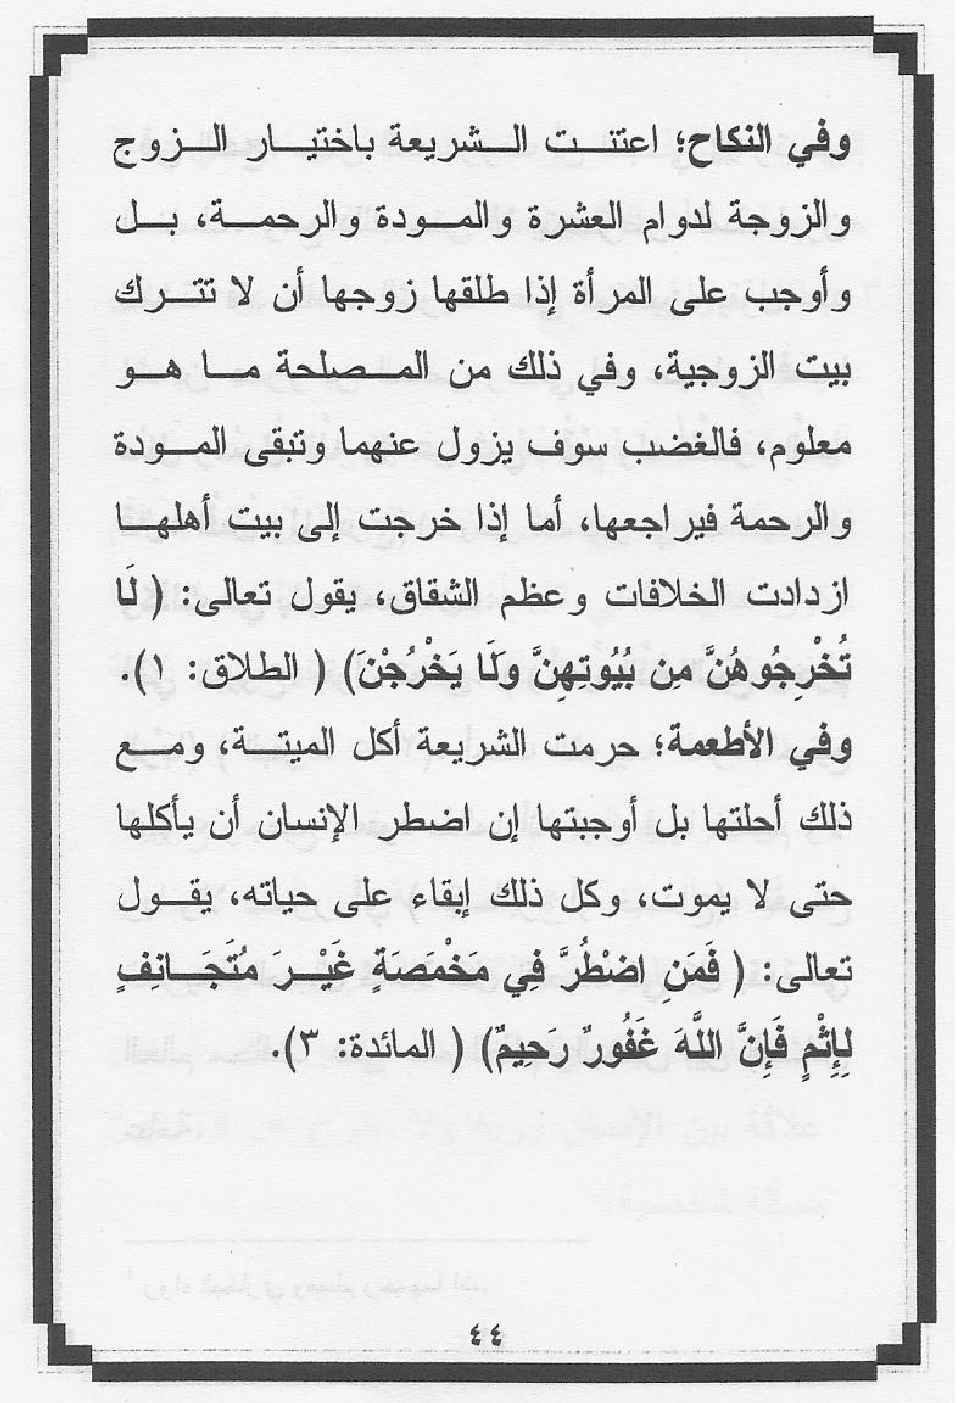 وفي النكاح؛ اعتنت الشريعة باختيار الزوج
والزوجة لدوام العشرة والمودة والرحمة، بل
وأوجب على المرأة إذا طلقها زوجها أن لا تترك
بيت الزوجية، وفي ذلك من المصلحة ما هو
معلوم، فالغضب سوف يزول عنهما وتبقى المودة
والرحمة فيراجعها، أما إذا خرجت إلى بيت أهلها
ازدادت الخلافات وعظم الشقاق، يقول تعالى: ( لَا
تُخْرِجُوهُنَّ مِن بُيُوتِهِنَّ وَلَا يَخْرُجْنَ) ( الطلاق: ١).
وفي الأطعمة؛ حرمت الشريعة أكل الميتة، ومع
ذلك أحلتها بل أوجبتها إن اضطر الإنسان أن يأكلها
حتى لا يموت، وكل ذلك إبقاء على حياته، يقول
تعالى: ( فَمَنِ اضْطُرَّ فِي مَخْمَصَةٍ غَيْرَ مُتَجَانِفٍ
لِإِثْمٍ فَإِنَّ اللَّهَ غَفُورٌ رَحِيمٌ) ( المائدة: ٣).
٤٤